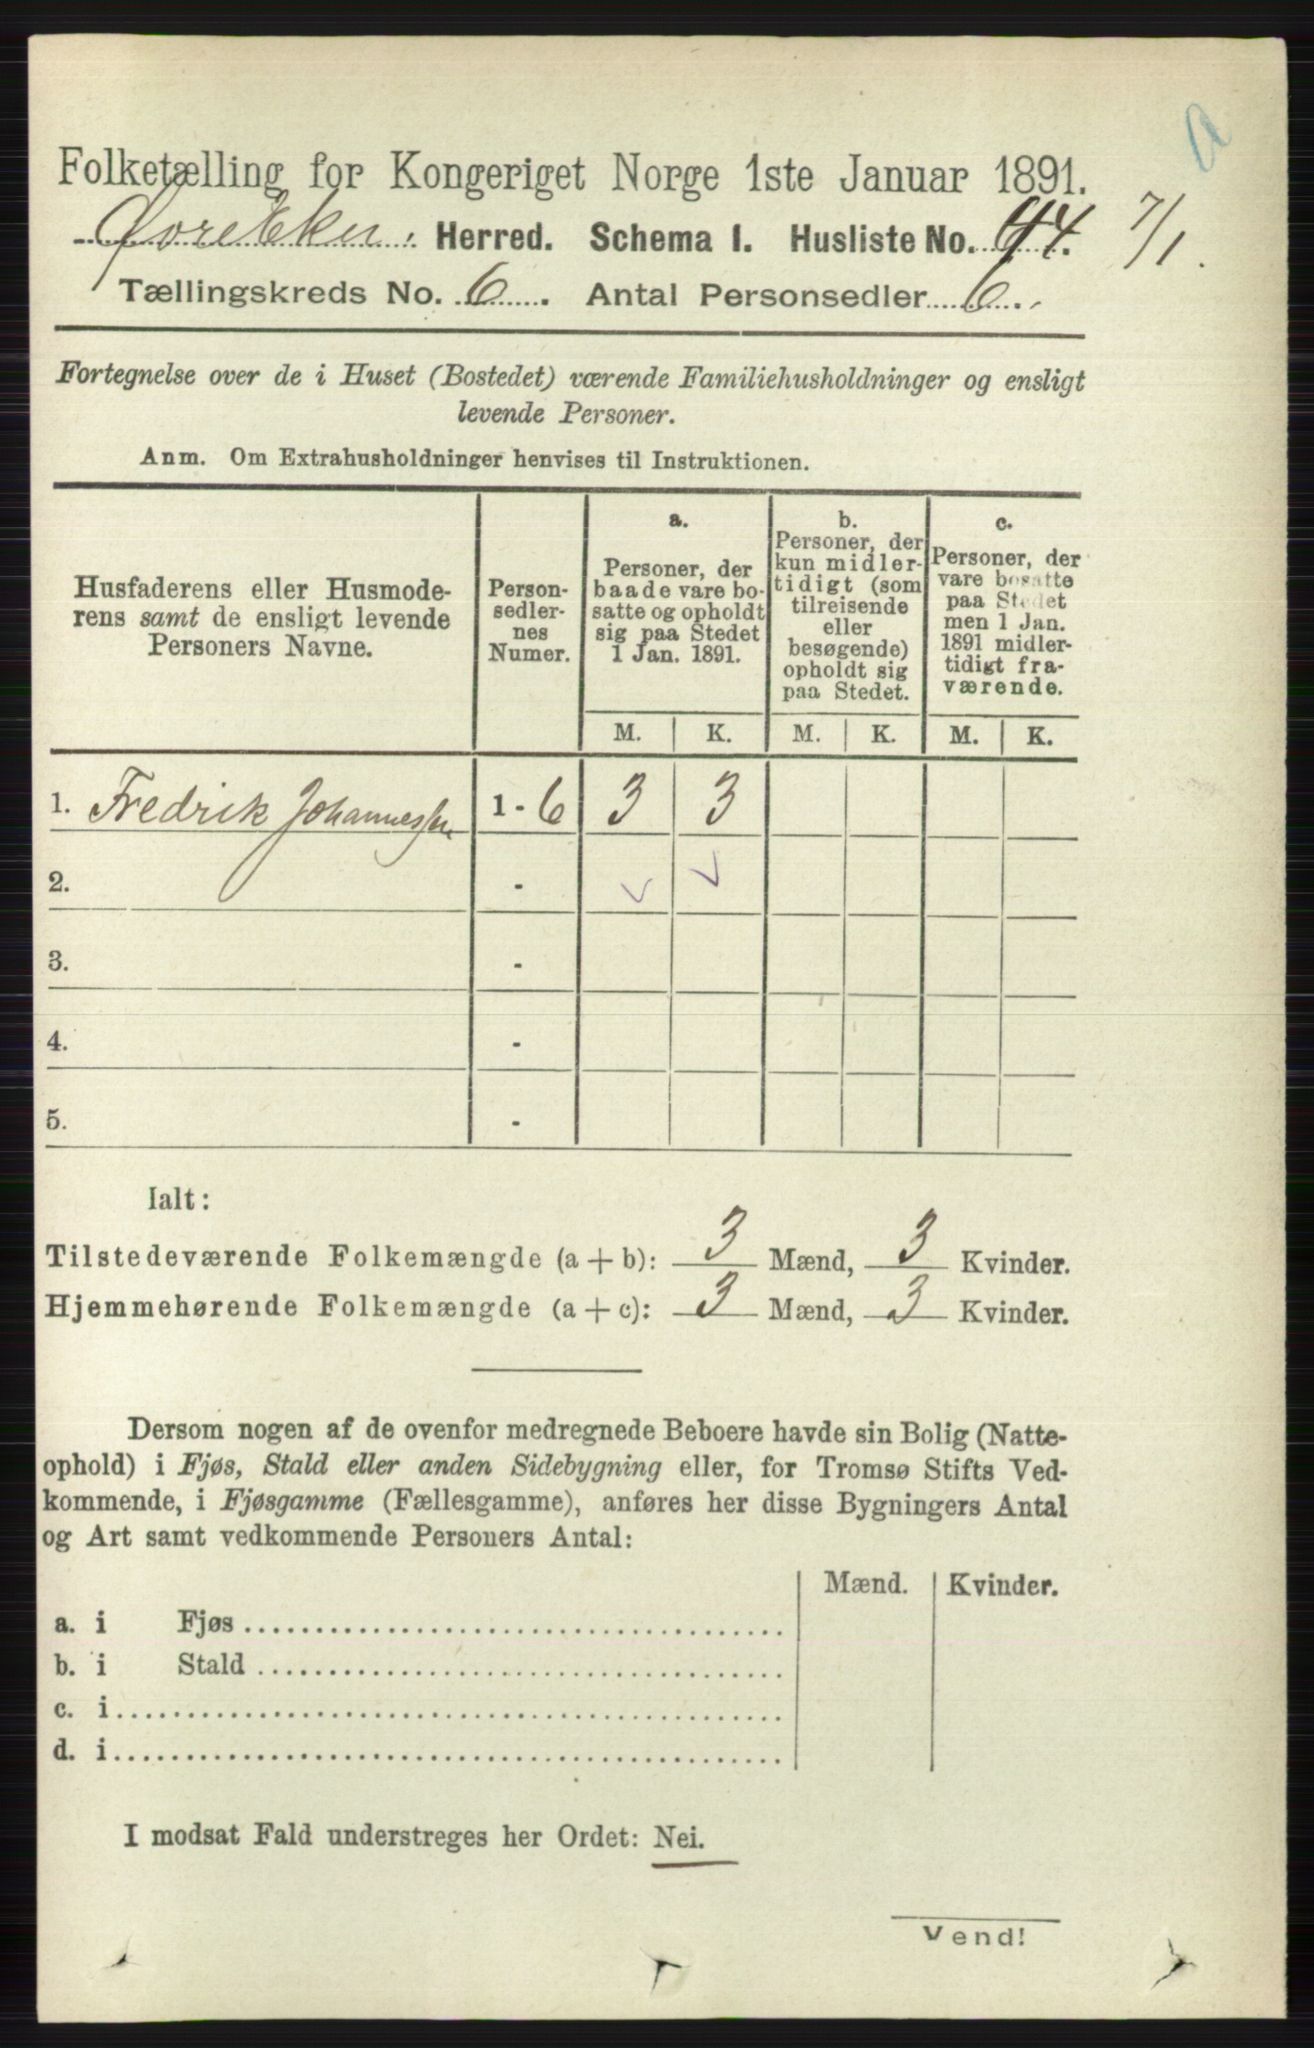 Folketælling for Kongeriget Norge 1ste Januar 1891.
Øvre Eker. Herred. Schema I. Husliste No. 44. 7/1.
Tællingskreds No. 6. Antal Personsedler 6.
Fortegnelse over de i Huset (Bostedet) værende Familiehusholdninger og ensligt
levende Personer.
Anm. Om Extrahusholdninger henvises til Instruktionen.
Husfaderens eller Husmode-
rens samt de ensligt levende
Personers Navne.
Person-
sedler-
nes
Numer.
a.
Personer, der
baade vare bo-
satte og opholdt
sig paa Stedet
1 Jan. 1891.
b.
Personer, der
kun midler-
tidigt (som
tilreisende
eller
besøgende)
opholdt sig
paa Stedet.
c.
Personer, der
vare bosatte
paa Stedet
men 1 Jan.
1891 midler-
tidigt fra-
værende.
M. K. M. K. M. K.
1. Fredrik Johannessen 1 - 6 3 3
2. -
3. -
4. -
5. -
Ialt:
Tilstedeværende Folkemængde (a + b): 3 Mænd, 3 Kvinder.
Hjemmehørende Folkemængde (a + c): 3 Mænd, 3 Kvinder.
Dersom nogen af de ovenfor medregnede Beboere havde sin Bolig (Natte-
ophold) i Fjøs, Stald eller anden Sidebygning eller, for Tromsø Stifts Ved-
kommende, i Fjøsgamme (Fællesgamme), anføres her disse Bygningers Antal
og Art samt vedkommende Personers Antal:
Mænd. Kvinder.
a. i Fjøs
b. i Stald
c. i
d. i
I modsat Fald understreges her Ordet: Nei.
Vend!